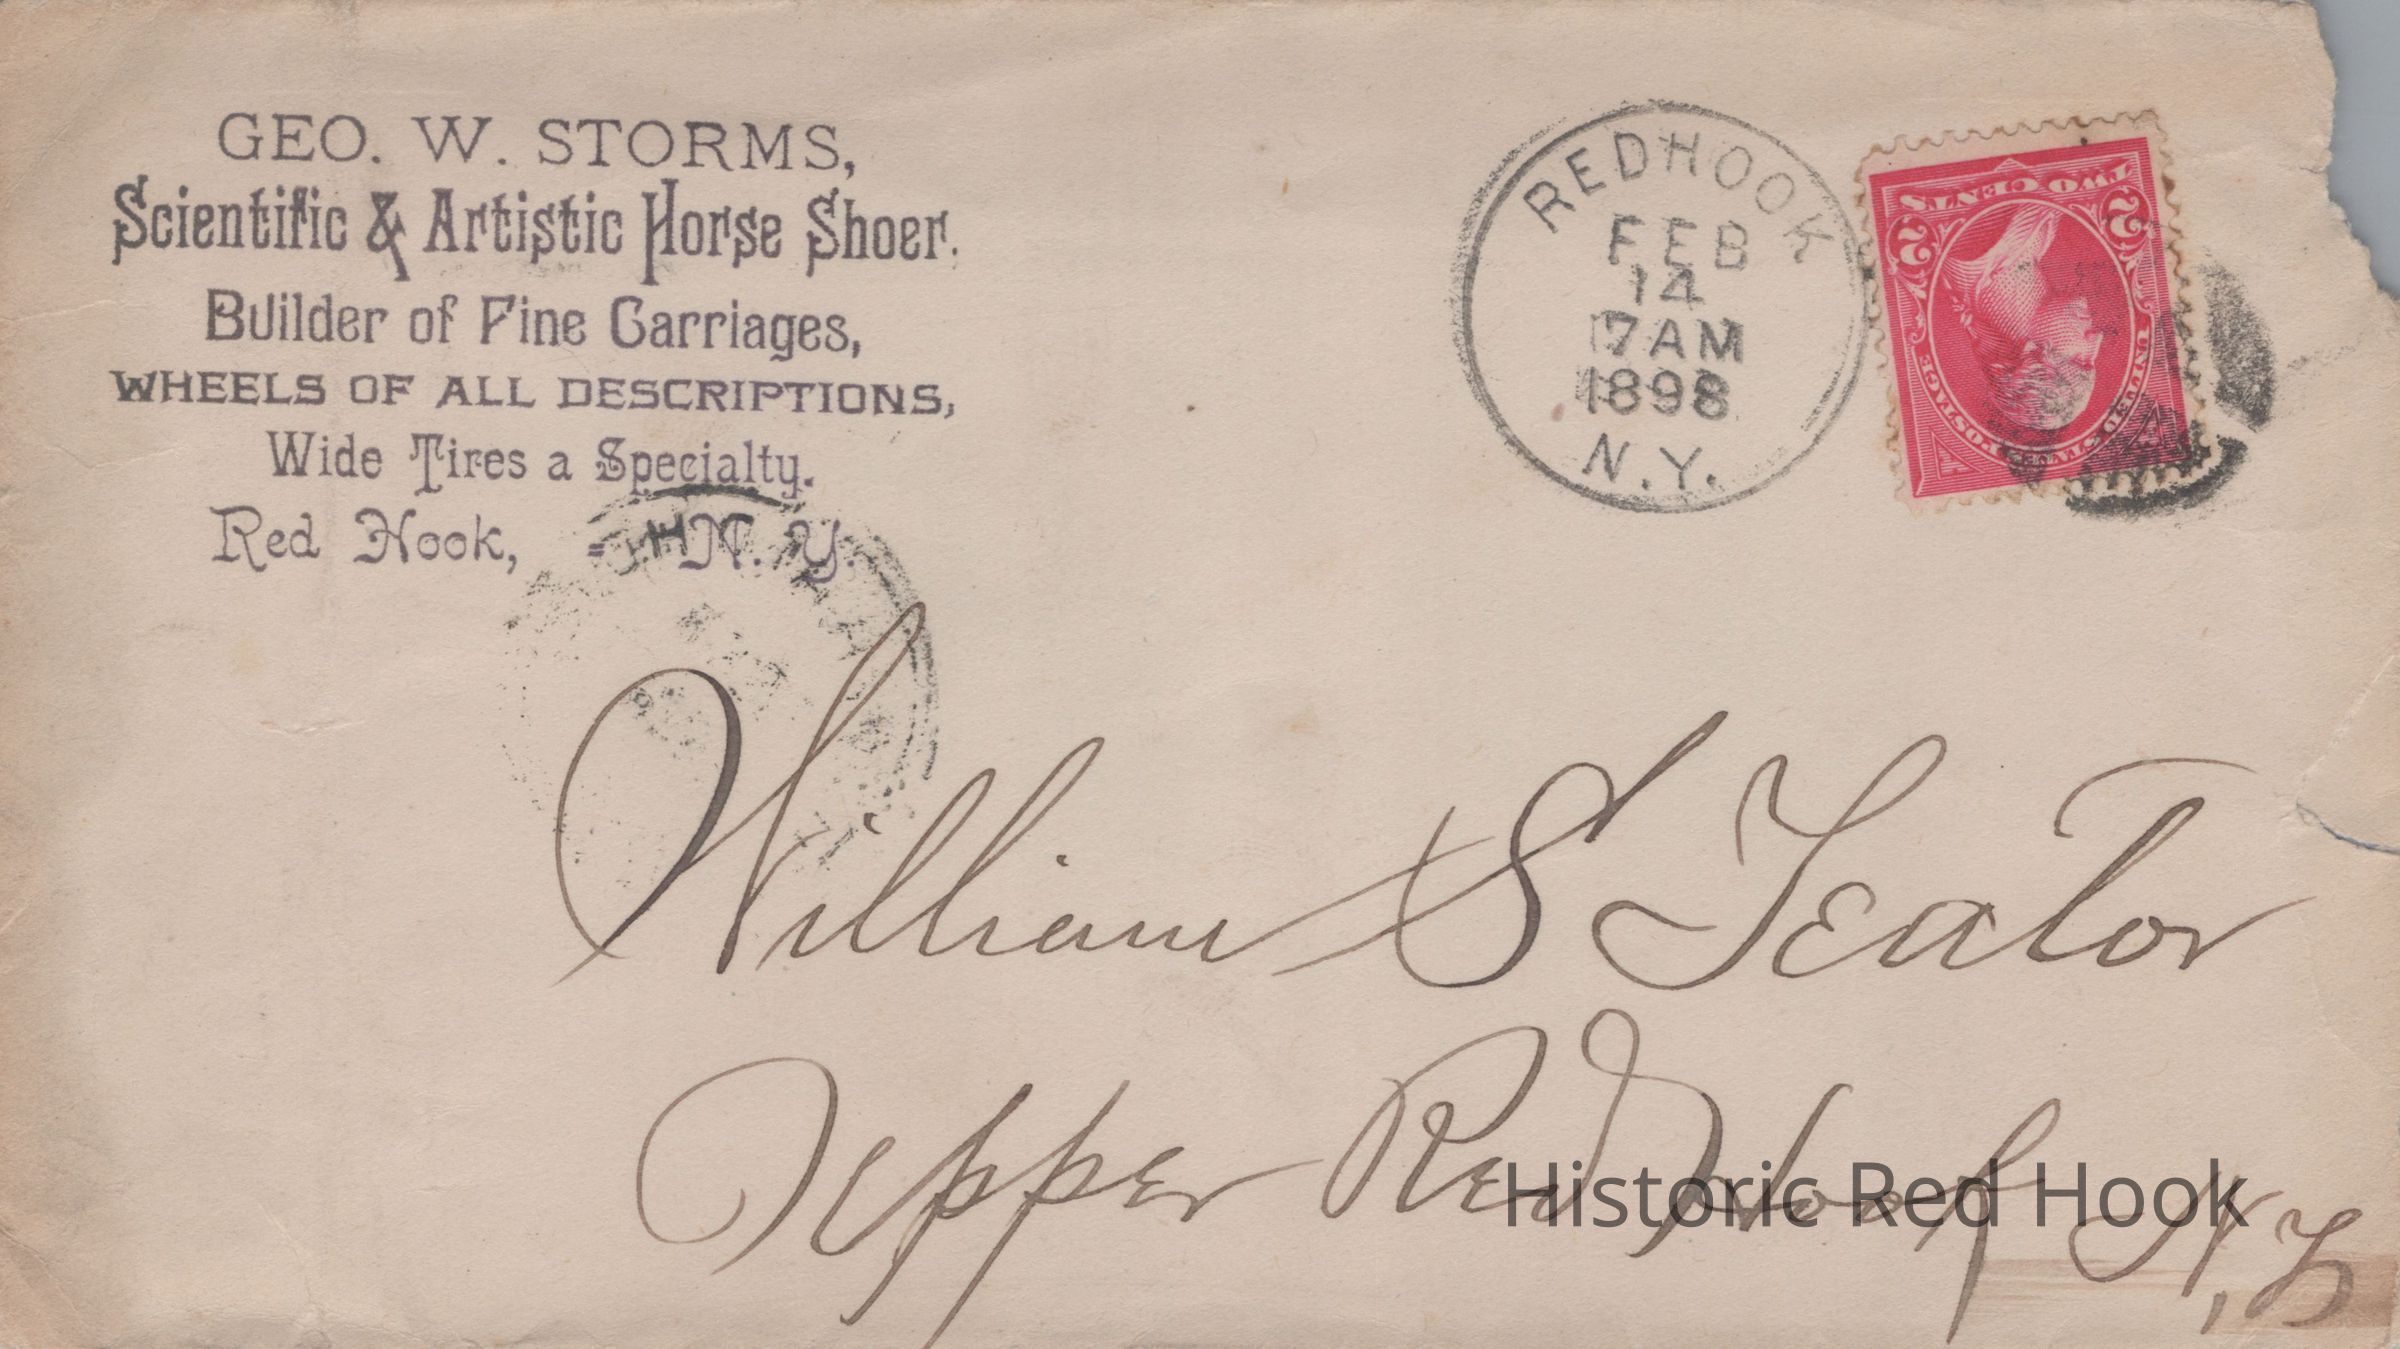 GEO. W. STORMS,
Scientific & Artistic Horse Shoer.
Builder of Fine Carriages,
WHEELS OF ALL DESCRIPTIONS,
Wide Tires a Specialty.
Red Hook, - N. Y.
RED HOOK
FEB
14
7 AM
1898
N.Y.
TWO CENTS
2 2
UNITED STATES POSTAGE
William S Teator
Upper Red Hook N,Y
Historic Red Hook